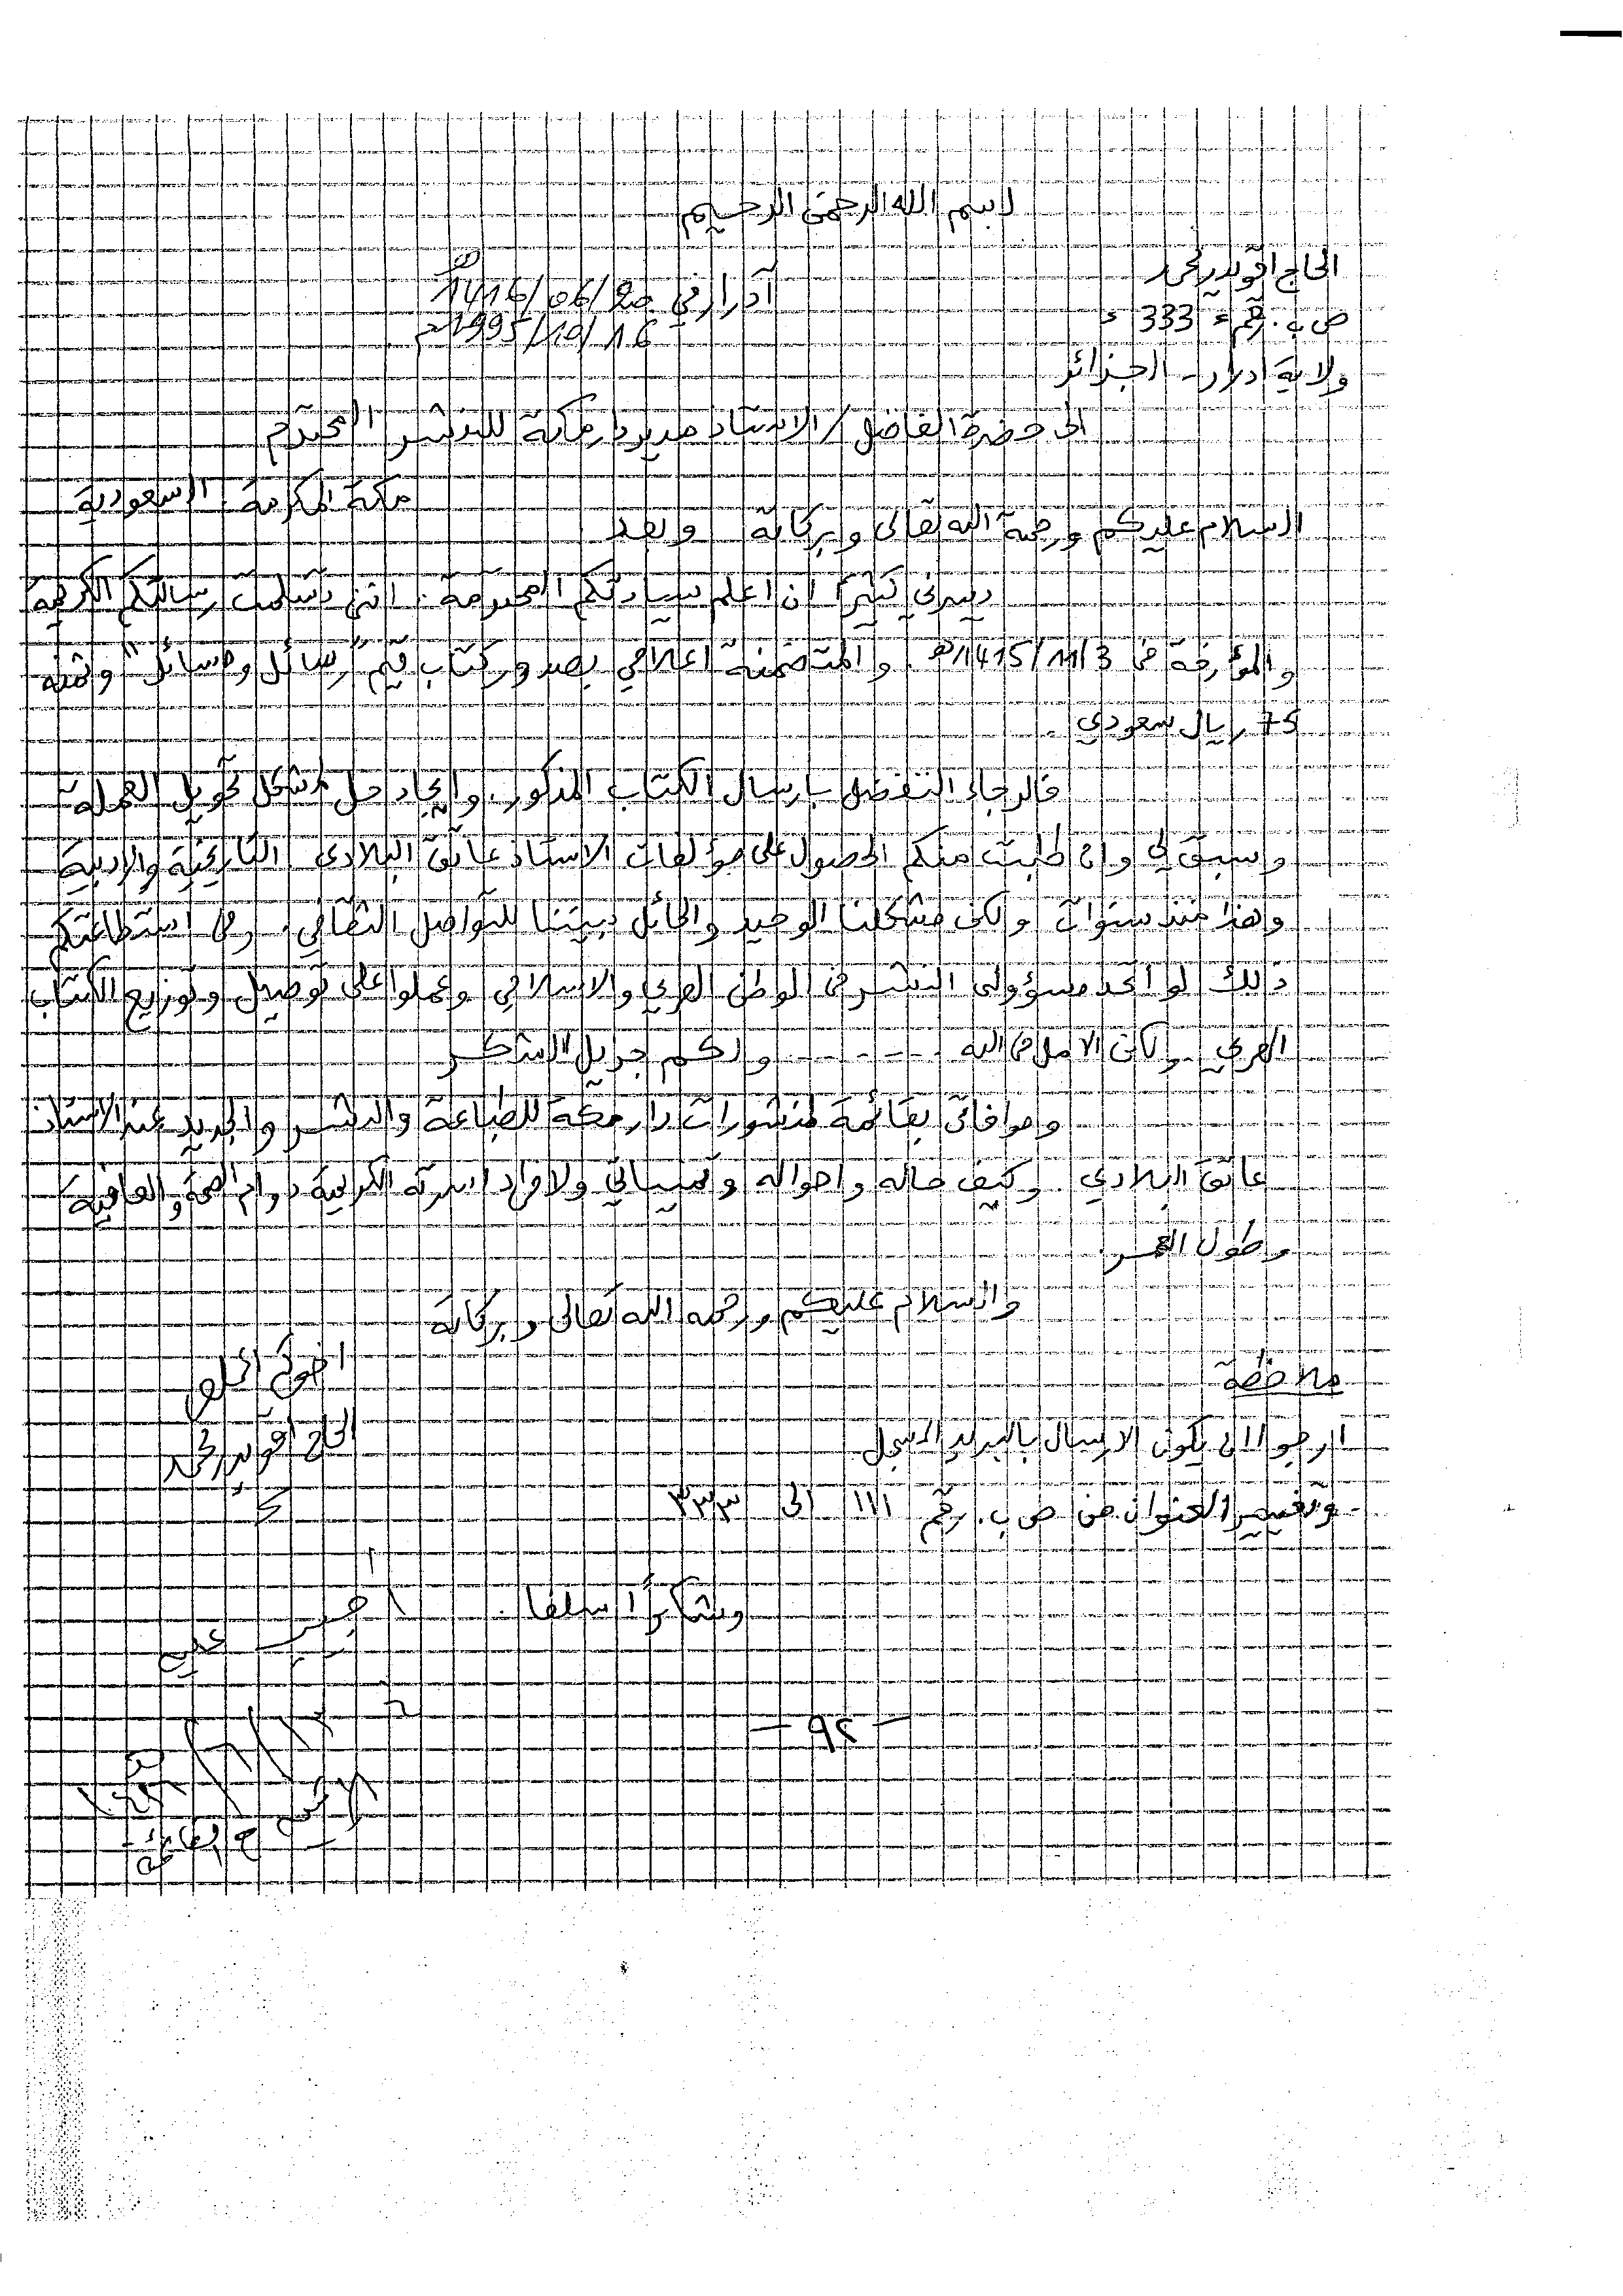 بسم الله الرحمن الرحيم
الحاج اقويدر محمد
ص.ب. رقم = 333 =
ولاية ادرار - الجزائر
آدرار في 20/06/1416هـ
16/10/1995م
الى حضرة الفاضل / الاستاذ مدير دار مكة للنشر المحترم
مكة المكرمة السعودية
السلام عليكم ورحمة الله تعالى وبركاته وبعد
يسرني كثيرا ان اعلم سيادتكم المحترمة : انني تسلمت رسالتكم الكريمة
والمؤرخة في 3/11/1415هـ والمتضمنة اعلامي بصدور كتابكم "رسائل ومسائل" وثمنه
75 ريال سعودي .
فالرجاء التفضل بارسال الكتاب المذكور. وايجاد حل لمشكل تحويل العملة
وسبق لي وان طلبت منكم الحصول على مؤلفات الاستاذ عاتق البلادي التاريخية والادبية
وهذا منذ سنوات ولكن مشكلنا الوحيد والحائل بيننا للتواصل الثقافي. وفي استطاعتكم
ذلك لو اتحد مسؤولي النشر في الوطن العربي والاسلامي وعملوا على توصيل وتوزيع الكتاب
العربي. ولكن الامل في الله ------ ولكم جزيل الشكر
وموافاتي بقائمة منشورات دار مكة للطباعة والنشر والجديد عند الاستاذ
عاتق البلادي. وكيف حاله واحواله وتمنياتي ولافراد اسرته الكريمة دوام الصحة والعافية
وطول العمر.
والسلام عليكم ورحمة الله تعالى وبركاته
ملاحظة
ارجو ان يكون الارسال بالبريد المسجل
الحاج اقويدر محمد
وتغيير العنوان من ص.ب. رقم ١١١ الى ٣٣٣
وشكراً سلفا.
— ٩٤ —